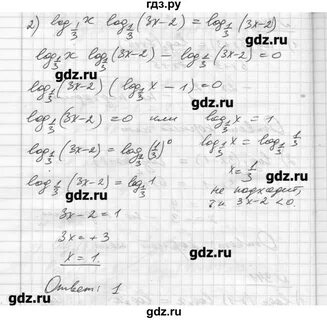 гдз.ру
2) log_{1/3} x log_{1/3} (3x-2) = log_{1/3} (3x-2)
log_{1/3} x log_{1/3} (3x-2) - log_{1/3} (3x-2) = 0
gdz.ru gdz.ru
log_{1/3} (3x-2) (log_{1/3} x - 1) = 0
log_{1/3} (3x-2) = 0 или log_{1/3} x = 1
gdz.ru gdz.ru
log_{1/3} (3x-2) = log_{1/3} (1/3)^0 log_{1/3} x = log_{1/3} 1/3
log_{1/3} (3x-2) = log_{1/3} 1 x = 1/3
gdz.ru gdz.ru
не подходит,
3x-2 = 1 т.к 3x-2 < 0.
3x = +3
gdz.ru gdz.ru
x = 1.
Ответ: 1
gdz.ru